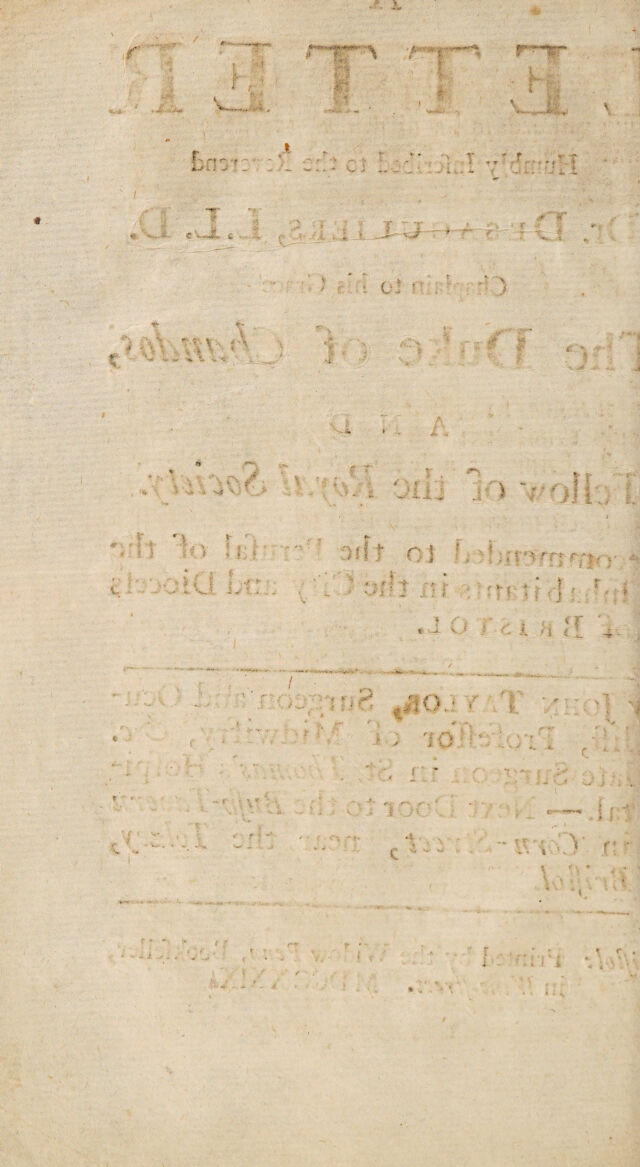 A
LETTER
Humbly Inscribed to the Reverend
Dr. DESAGULIERS, L.L.D.
Chaplain to his Grace
The Duke of Chandos,
AND
Fellow of the Royal Society.
ecommended to the Perusal of the
Inhabitants in the City and Diocess
of BRISTOL.
y JOHN TAYLOR, Surgeon and Ocu-
list, Professor of Midwifry, &c.
late Surgeon in St. Thomas's Hospi-
tal. — Next Door to the Bush-Tavern
in Corn-Street, near the Tolzey,
Bristol.
istol: Printed by the Widow Penn, Bookseller,
in Wine-street. MDCCXXIX